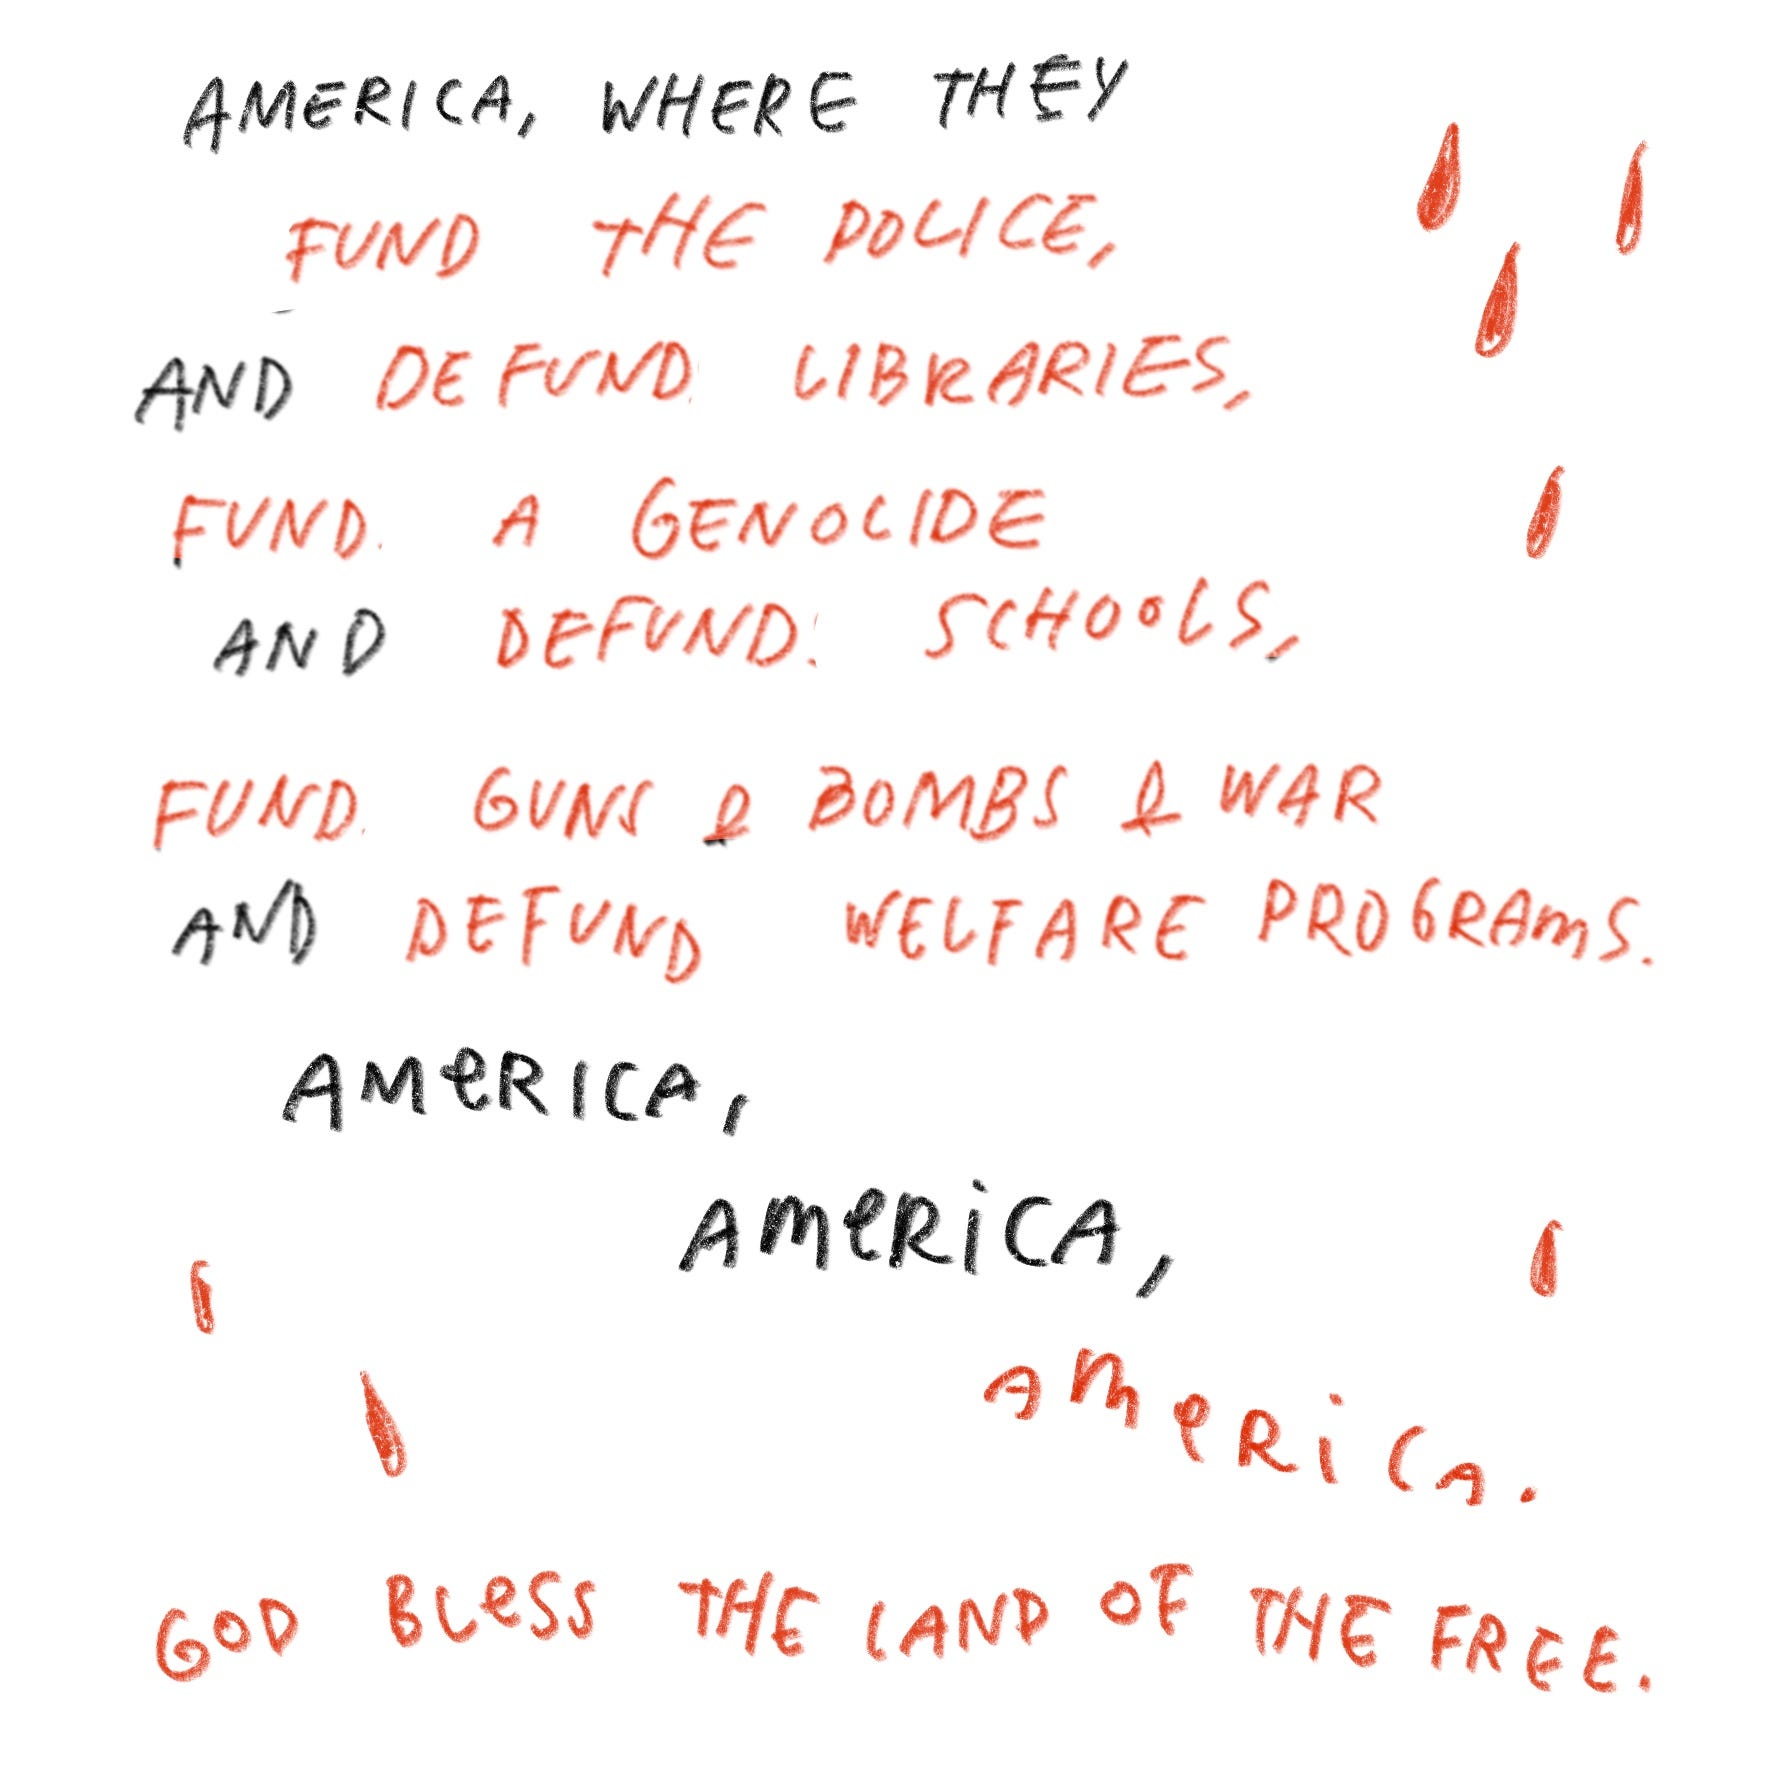 AMERICA, WHERE THEY
FUND THE POLICE,
AND DEFUND LIBRARIES,
FUND A GENOCIDE
AND DEFUND SCHOOLS,
FUND GUNS & BOMBS & WAR
AND DEFUND WELFARE PROGRAMS.
AMERICA,
AMERICA,
AMERICA.
GOD BLESS THE LAND OF THE FREE.